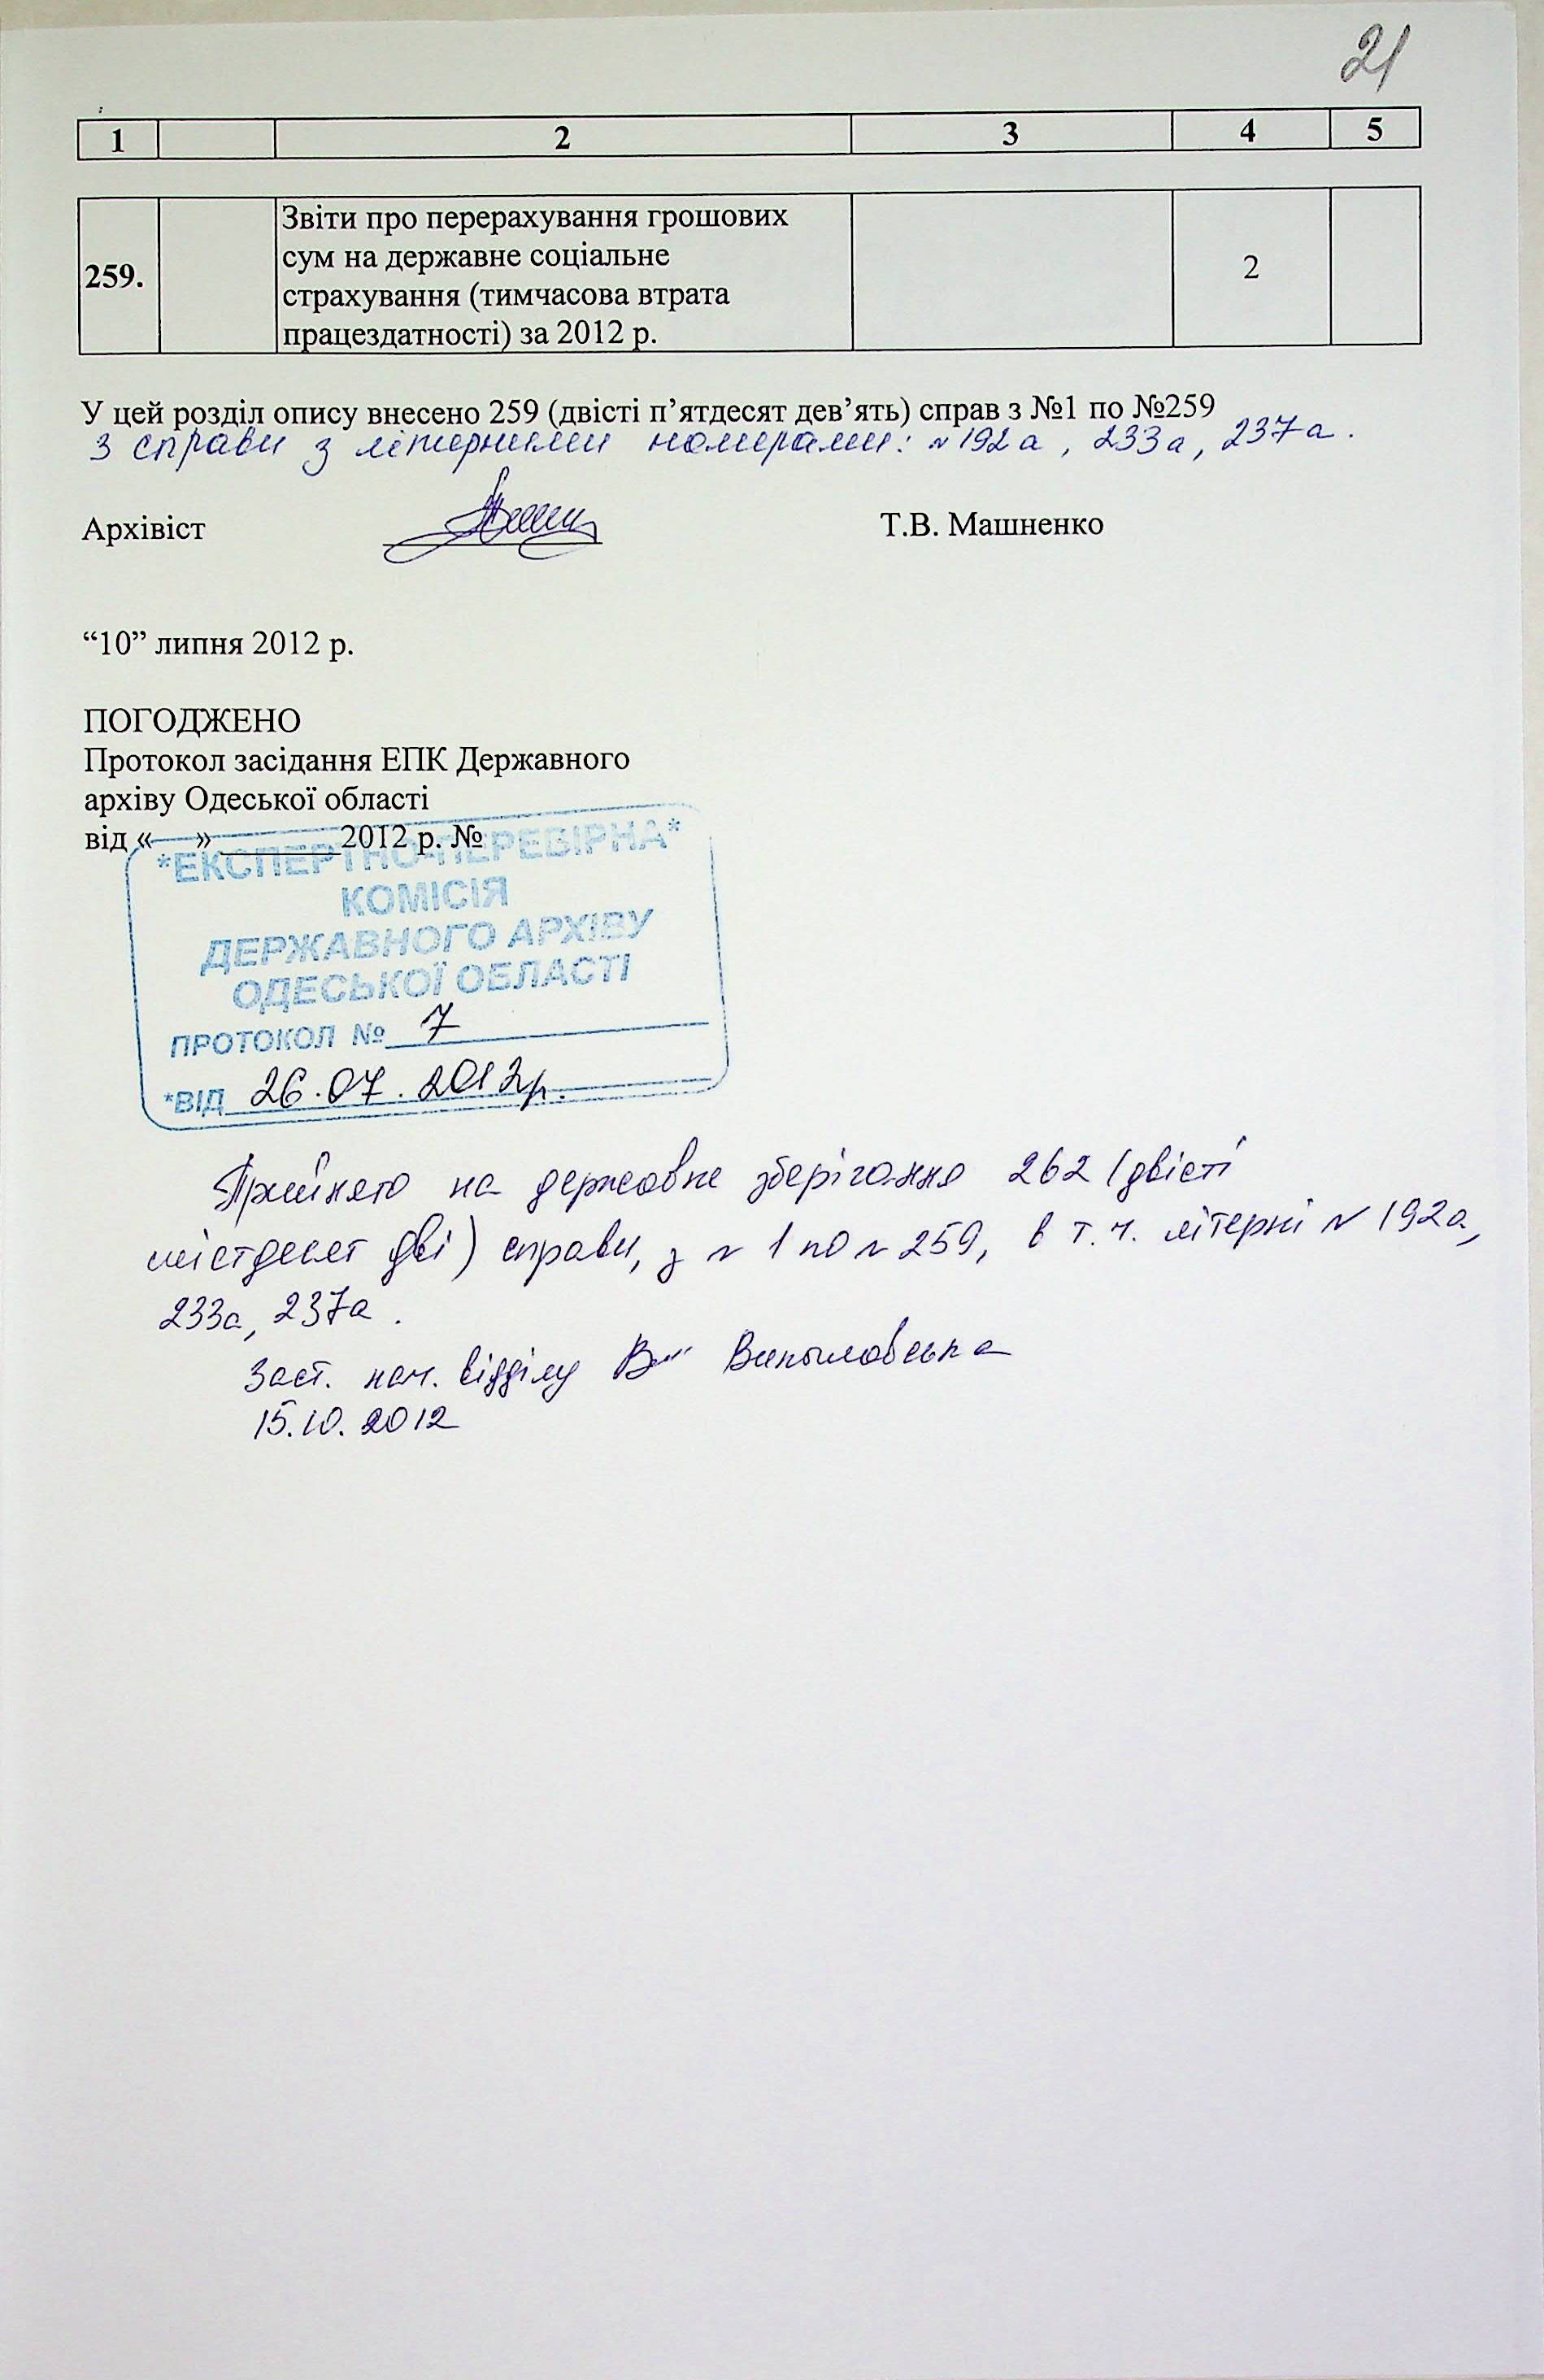 21
1 2 3 4 5
259. Звіти про перерахування грошових
сум на державне соціальне
страхування (тимчасова втрата
працездатності) за 2012 р. 2
У цей розділ опису внесено 259 (двісті п’ятдесят дев’ять) справ з №1 по №259
3 справи з літерними номерами: № 192а, 233а, 237а.
Архівіст Т.В. Машненко
“10” липня 2012 р.
ПОГОДЖЕНО
Протокол засідання ЕПК Державного
архіву Одеської області
від «__» ________ 2012 р. №
*ЕКСПЕРТНО-ПЕРЕВІРНА*
КОМІСІЯ
ДЕРЖАВНОГО АРХІВУ
ОДЕСЬКОЇ ОБЛАСТІ
ПРОТОКОЛ № 7
*ВІД 26.07.2012р.
Прийнято на державне зберігання 262 (двісті
шістдесят дві) справи, з № 1 по № 259, в т.ч. літерні № 192а,
233а, 237а.
Заст. нач. відділу
15.10.2012